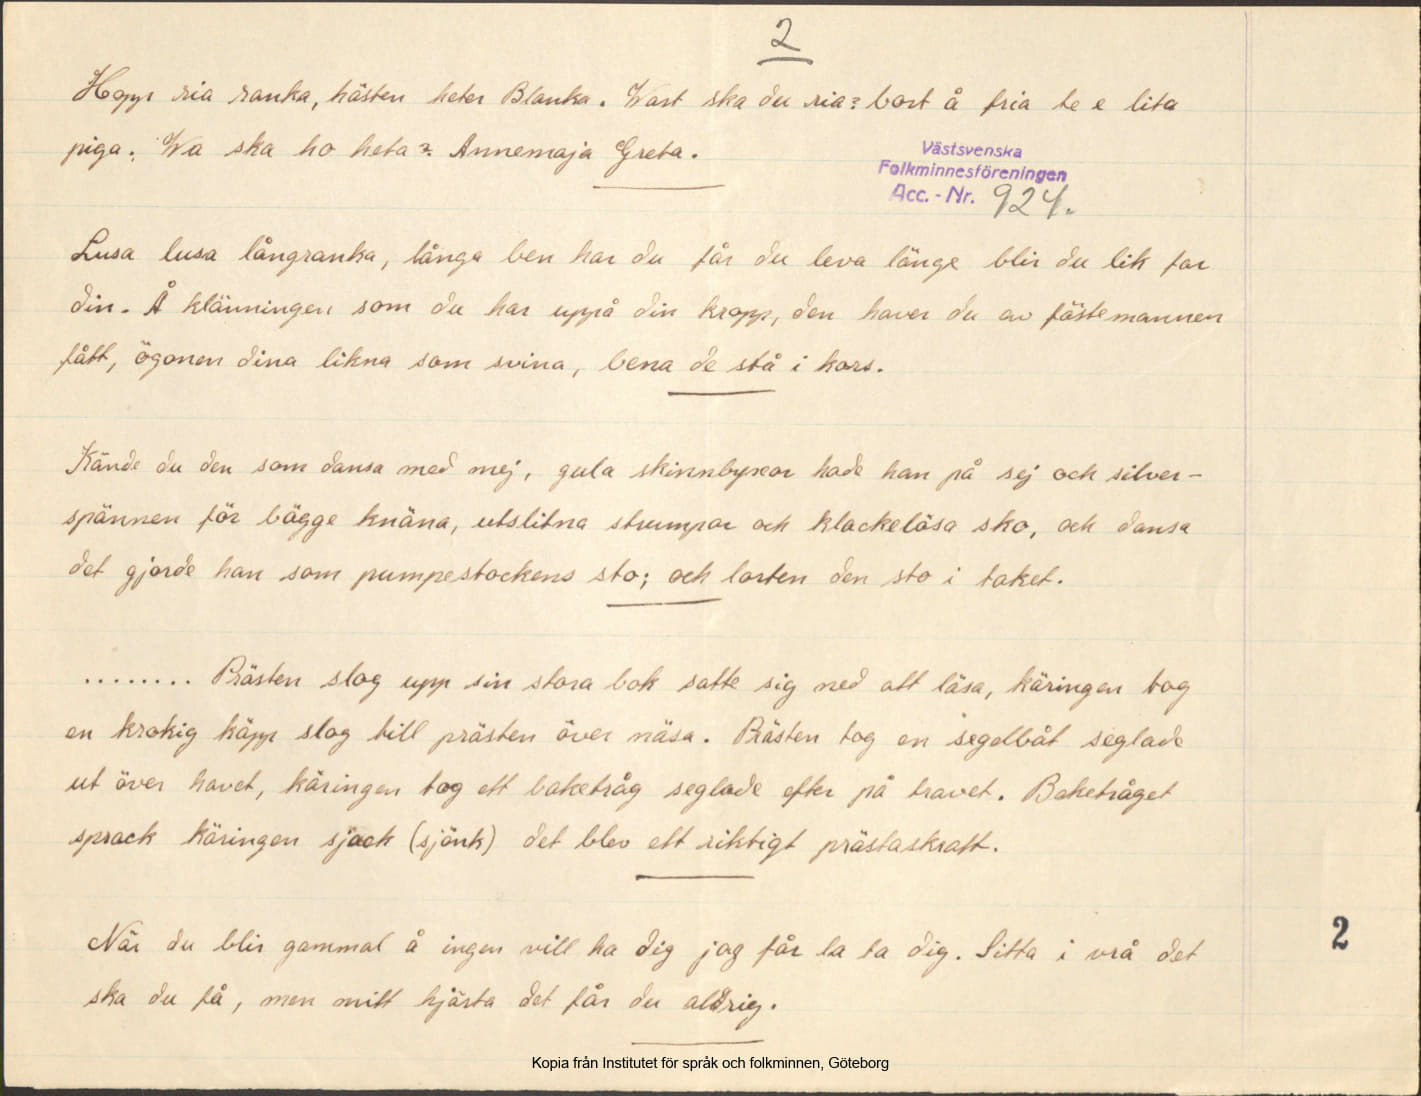 2
Hopp ria ranka, hästen heter Blanka. Wart ska du ria? bort å fria te e lita
piga. Wa ska ho heta? Annemaja Greta.
Västsvenska
Folkminnesföreningen
Acc.-Nr. 924.
Lusa lusa långranka, långa ben har du får du leva länge blir du lik far
din. Å klänningen som du har uppå din kropp, den haver du av fästemannen
fått, ögonen dina likna som svina, bena de stå i kors.
Kände du den som dansa med mej, gula skinnbyxor hade han på sej och silver-
spännen för bägge knäna, utslitna strumpor och klackelösa sko, och dansa
det gjorde han som pumpestockens sto; och lorten den sto i taket.
........ Prästen slog upp sin stora bok satte sig ned att läsa, käringen tog
en krokig käpp slog till prästen över näsa. Prästen tog en segelbåt seglade
ut över havet, käringen tog ett baketråg seglade efter på travet. Baketråget
sprack käringen sjack (sjönk) det blev ett riktigt prästaskratt.
När du blir gammal å ingen vill ha dig jag får la ta dig. Sitta i vrå det
ska du få, men mitt hjärta det får du aldrig.
2
Kopia från Institutet för språk och folkminnen, Göteborg